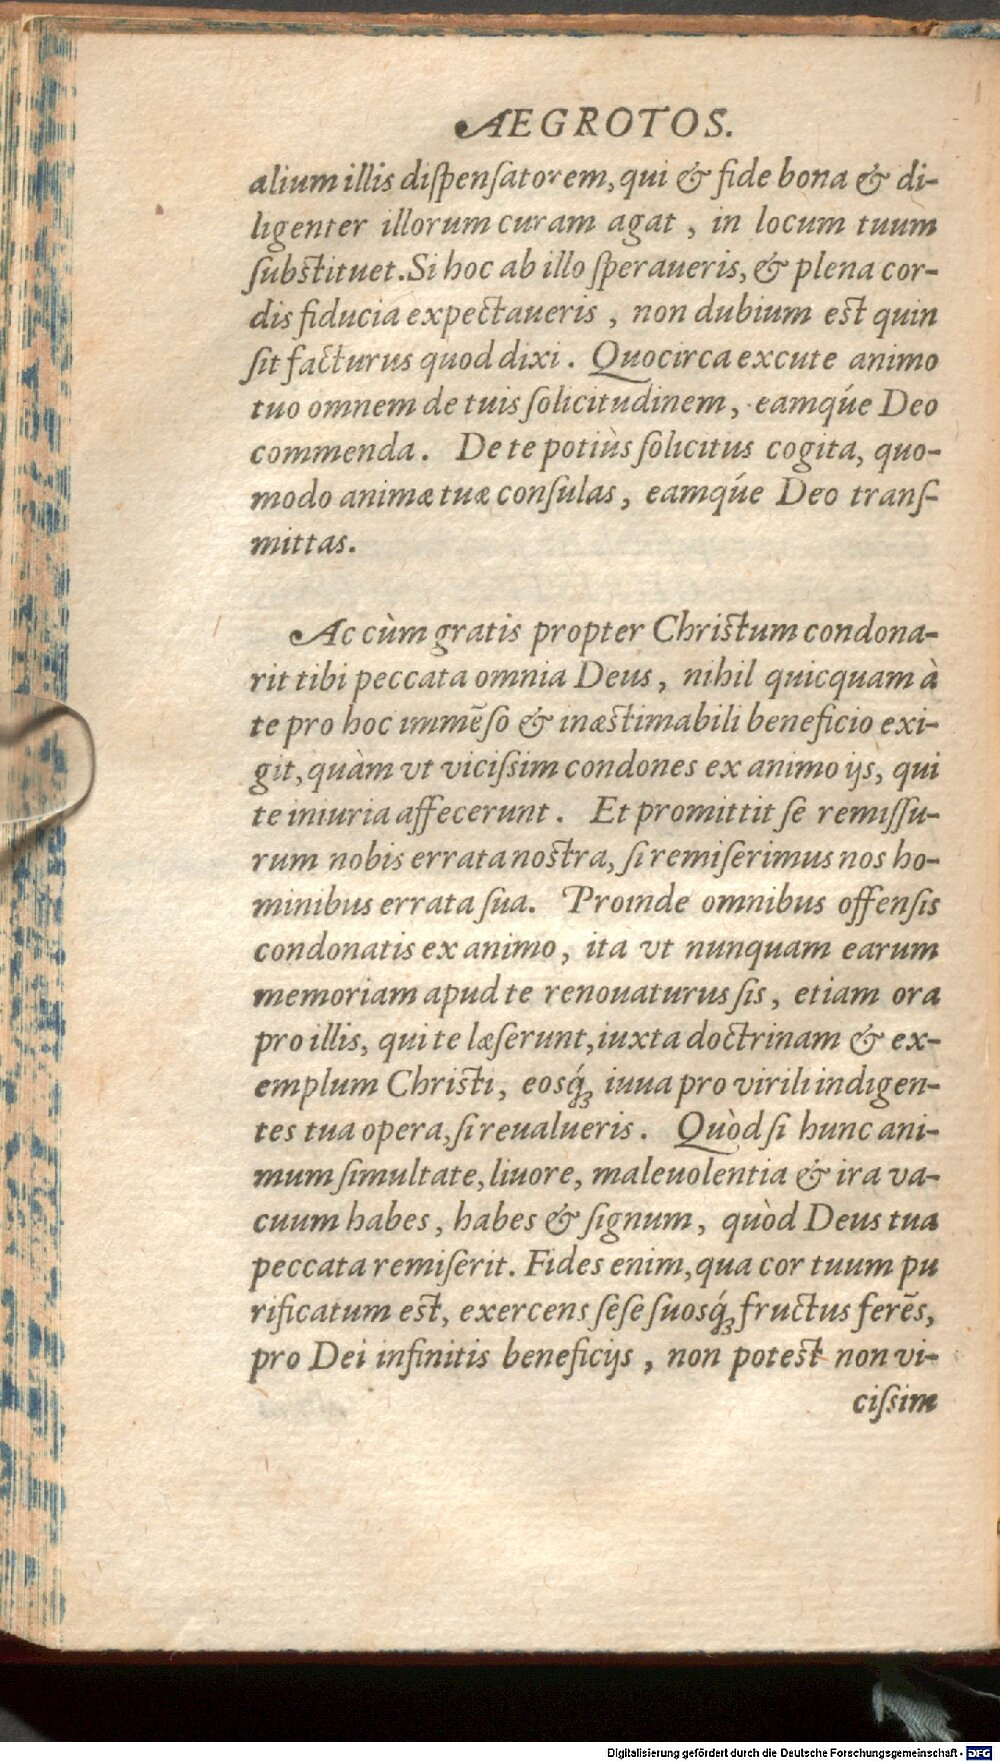 AEGROTOS.
alium illis diſpenſatorem, qui & fide bona & di-
ligenter illorum curam agat, in locum tuum
ſubſtituet. Si hoc ab illo ſperaueris, & plena cor-
dis fiducia expectaueris, non dubium eſt quin
ſit facturus quod dixi. Quocirca excute animo
tuo omnem de tuis ſolicitudinem, eamq́ue Deo
commenda. De te potiùs ſolicitus cogita, quo-
modo animæ tuæ conſulas, eamq́ue Deo tranſ-
mittas.
Ac cùm gratis propter Chriſtum condona-
rit tibi peccata omnia Deus, nihil quicquam à
te pro hoc immēſo & inæſtimabili beneficio exi-
git, quàm vt viciſsim condones ex animo ijs, qui
te iniuria affecerunt. Et promittit ſe remiſſu-
rum nobis errata noſtra, ſi remiſerimus nos ho-
minibus errata ſua. Proinde omnibus offenſis
condonatis ex animo, ita vt nunquam earum
memoriam apud te renouaturus ſis, etiam ora
pro illis, qui te læſerunt, iuxta doctrinam & ex-
emplum Chriſti, eosq́ꝫ iuua pro virili indigen-
tes tua opera, ſi reualueris. Quòd ſi hunc ani-
mum ſimultate, liuore, maleuolentia & ira va-
cuum habes, habes & ſignum, quòd Deus tua
peccata remiſerit. Fides enim, qua cor tuum pu
rificatum eſt, exercens ſeſe ſuosq́ꝫ fructus ferēs,
pro Dei infinitis beneficijs, non poteſt non vi-
ciſsim
Digitalisierung gefördert durch die Deutsche Forschungsgemeinschaft - DFG